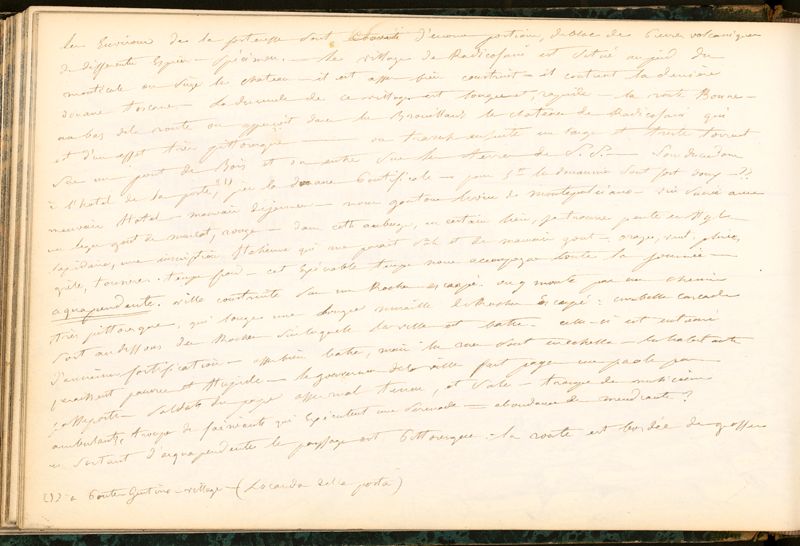 les environs de la forteresse sont couverts d'énormes portions, de blocs de pierres volcaniques
de différente espèce - spécimen. - le village de Radicofani est situé au pied du
monticule où siège le château - il est assez bien construit - il contient la dernière
douane toscane - la descente de ce village est longue et rapide - la route Bonne -
au bas de la route on apperçoit dans le Brouillard le château de Radicofani qui
est d'un effet très pittoresque - on traverse ensuite un large et triste torrent
sur un pont de Bois et on entre sur les terres de S. S. -
à l'hotel de la poste (1), près la douane Pontificale - pour les douaniers sont fort doux -
mauvais Hotel - mauvais déjeuner - nous goutons du vin de montepulciano - vin sucré avec
un léger goût de muscat, rouge - dans cette auberge, un certain lieu, se trouve peinte en style
lapidaire, une inscription Italienne qui me parait sale et de mauvais goût - orages, vent, pluie,
grêle, tonnerre. temps froid - cet épouvantable temps nous accompagne toute la journée -
aquapendente. ville construite sur un Rocher escarpé. on y monte par un chemin
très pittoresque, qui longe une longue muraille de Rocher escarpé : une belle cascade
sort au dessous du Rocher sur laquelle la ville est batie. celle-ci est entourée
d'anciennes fortifications - assez bien batie, mais les rues sont en échelle - les habitants
paraissent pauvres et stupides - le gouverneur de la ville fait payer une paole par
passeport - soldats du pape assez mal tenus, et sales - troupe de musiciens
ambulants, troupe de fainéants qui exécutent une sérénade = abondance de mendiants ?
en sortant d'aquapendente le paysage est Pittoresque - la route est bordée de
(1) à Ponte Gentino - village - (Locanda della posta)